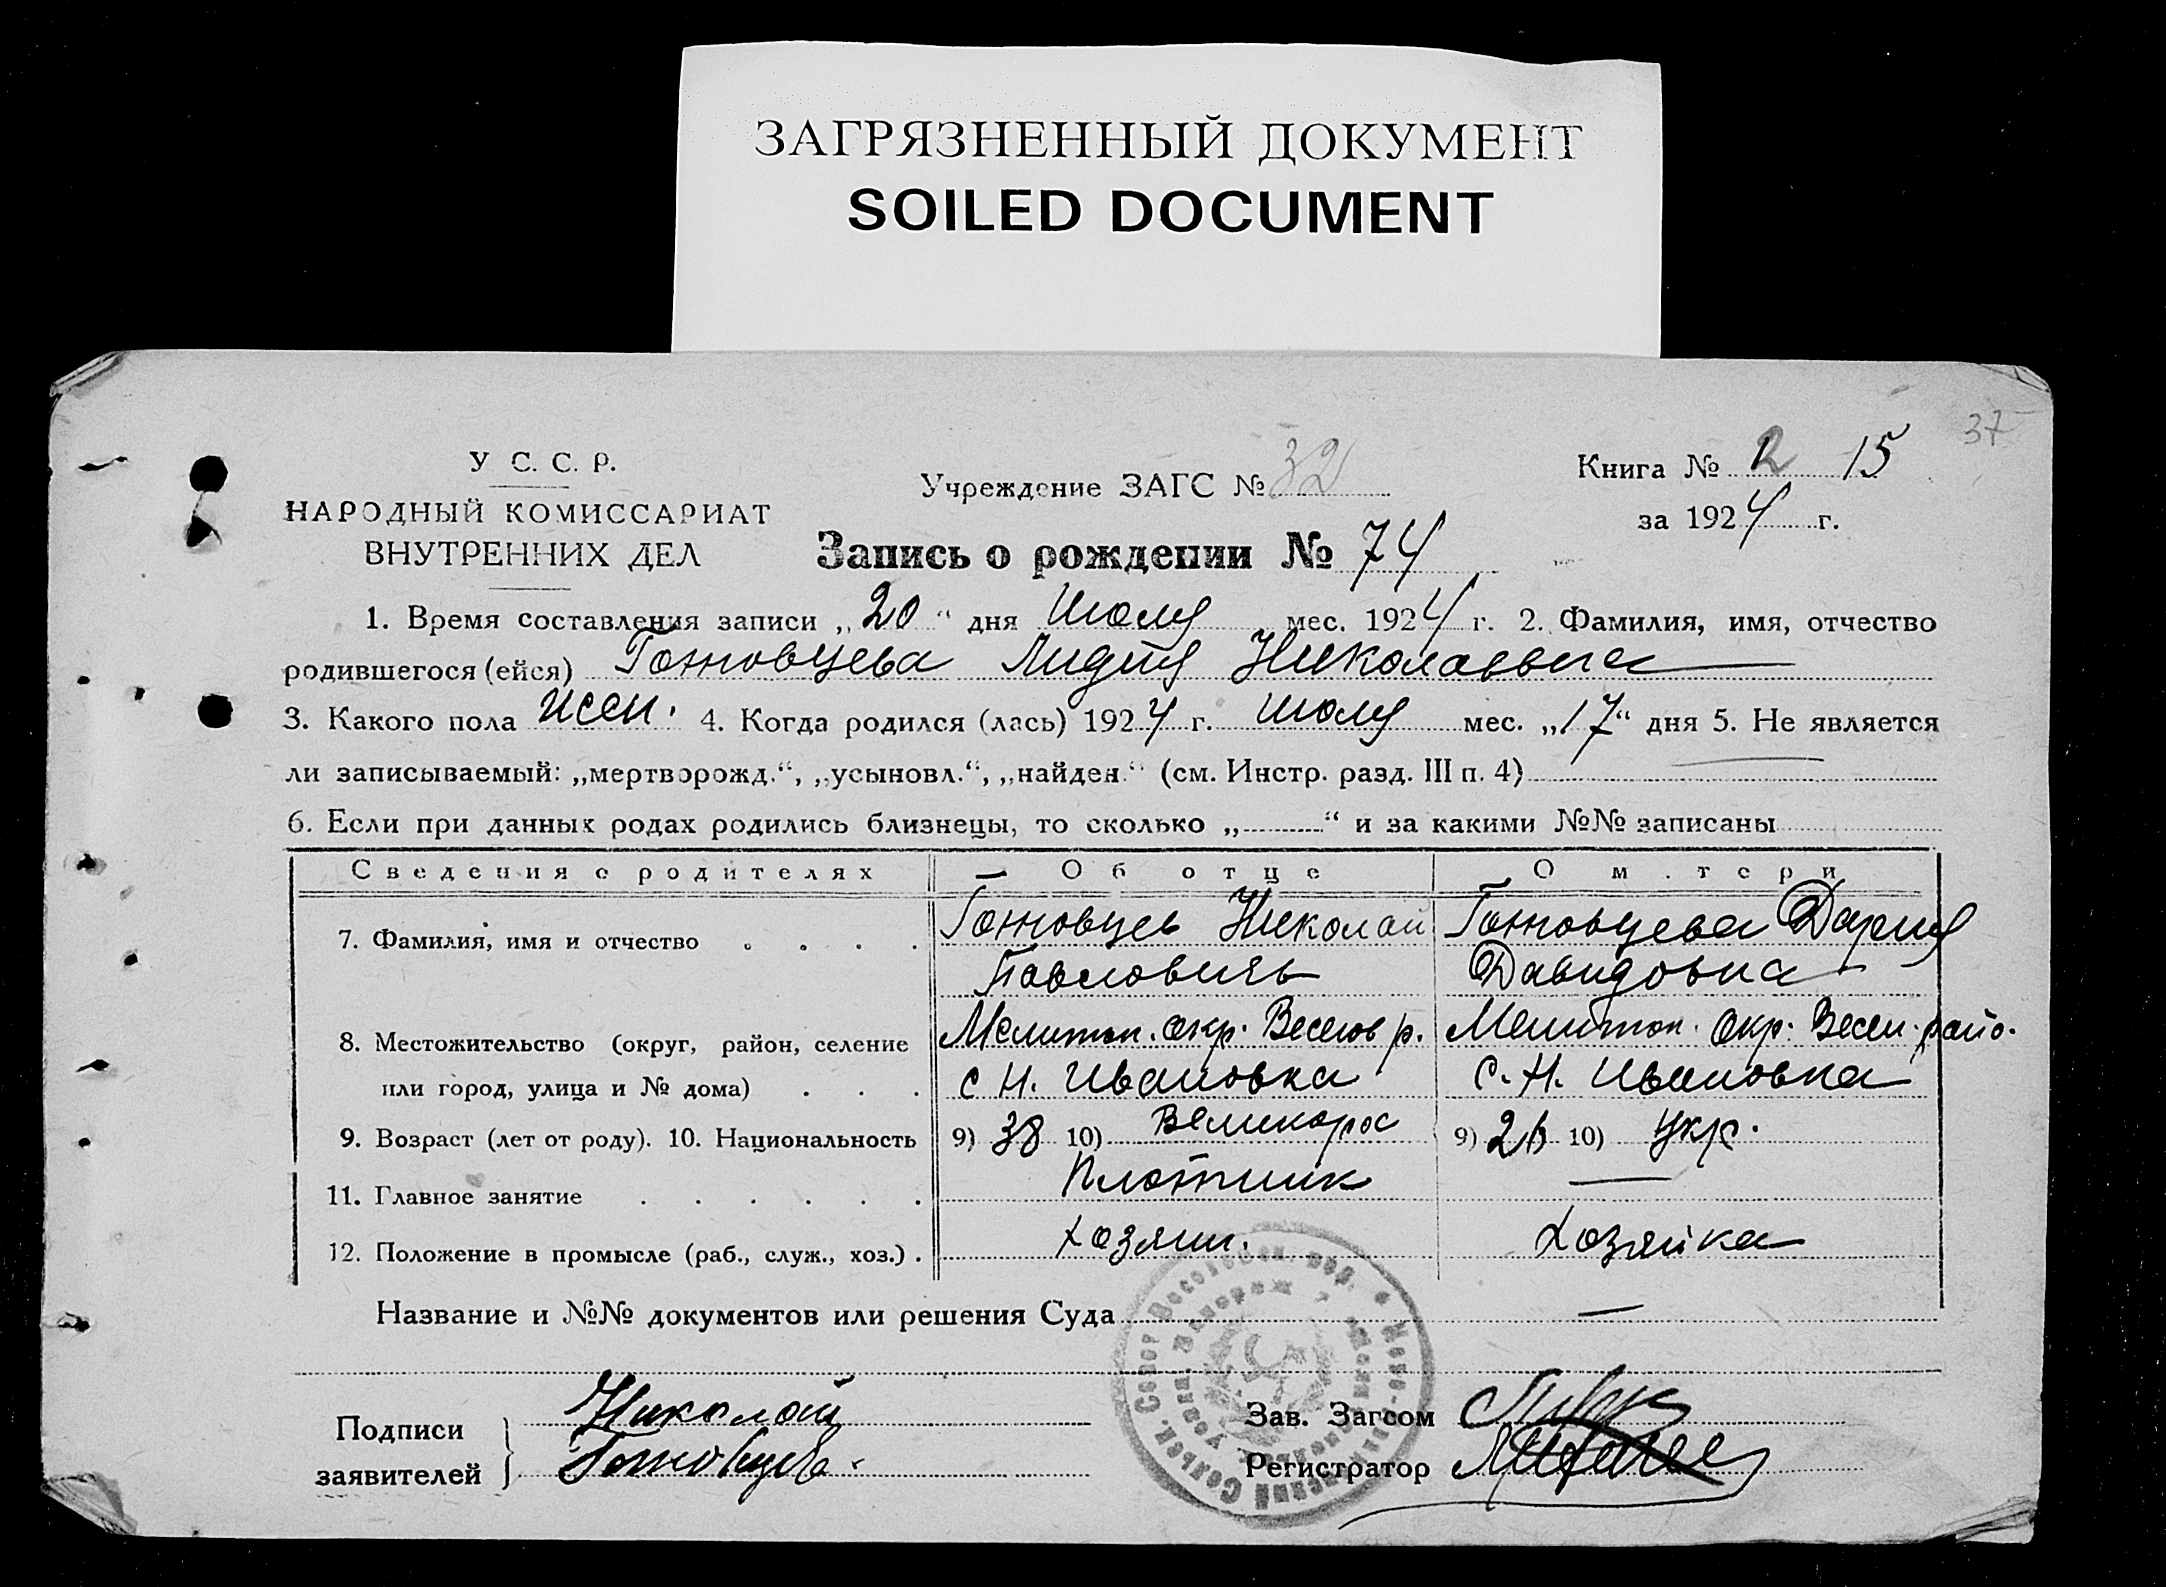 ЗАГРЯЗНЕННЫЙ ДОКУМЕНТ
SOILED DOCUMENT
37
У С. С. Р.
НАРОДНЫЙ КОМИССАРИАТ
ВНУТРЕННИХ ДЕЛ
Учреждение ЗАГС № 32
Книга № 2 15
за 1924 г.
Запись о рождении № 74
1. Время составления записи „20“ дня Июля мес. 1924 г. 2. Фамилия, имя, отчество
родившегося (ейся) Готовцева Лидия Николаевна
3. Какого пола жен. 4. Когда родился (лась) 1924 г. Июля мес. „17“ дня 5. Не является
ли записываемый: „мертворожд.“, „усыновл.“, „найден.“ (см. Инстр. разд. III п. 4)
6. Если при данных родах родились близнецы, то сколько „ “ и за какими №№ записаны
Сведения о родителях Об отце О м.тери
7. Фамилия, имя и отчество Готовцев Николай Готовцева Дария
Павловичь Давидовна
8. Местожительство (округ, район, селение Мелитоп. окр. Веселов р. Мелитоп. окр. Весел. райо.
или город, улица и № дома) с Н. Ивановка С. Н. Ивановка
9. Возраст (лет от роду). 10. Национальность 9) 38 10) Великорос 9) 26 10) Укр.
11. Главное занятие Плотник —
12. Положение в промысле (раб., служ., хоз.) хозяин. Хозяйка
Название и №№ документов или решения Суда —
Подписи
заявителей
Николай
Готовцев.
Зав. Загсом
Регистратор